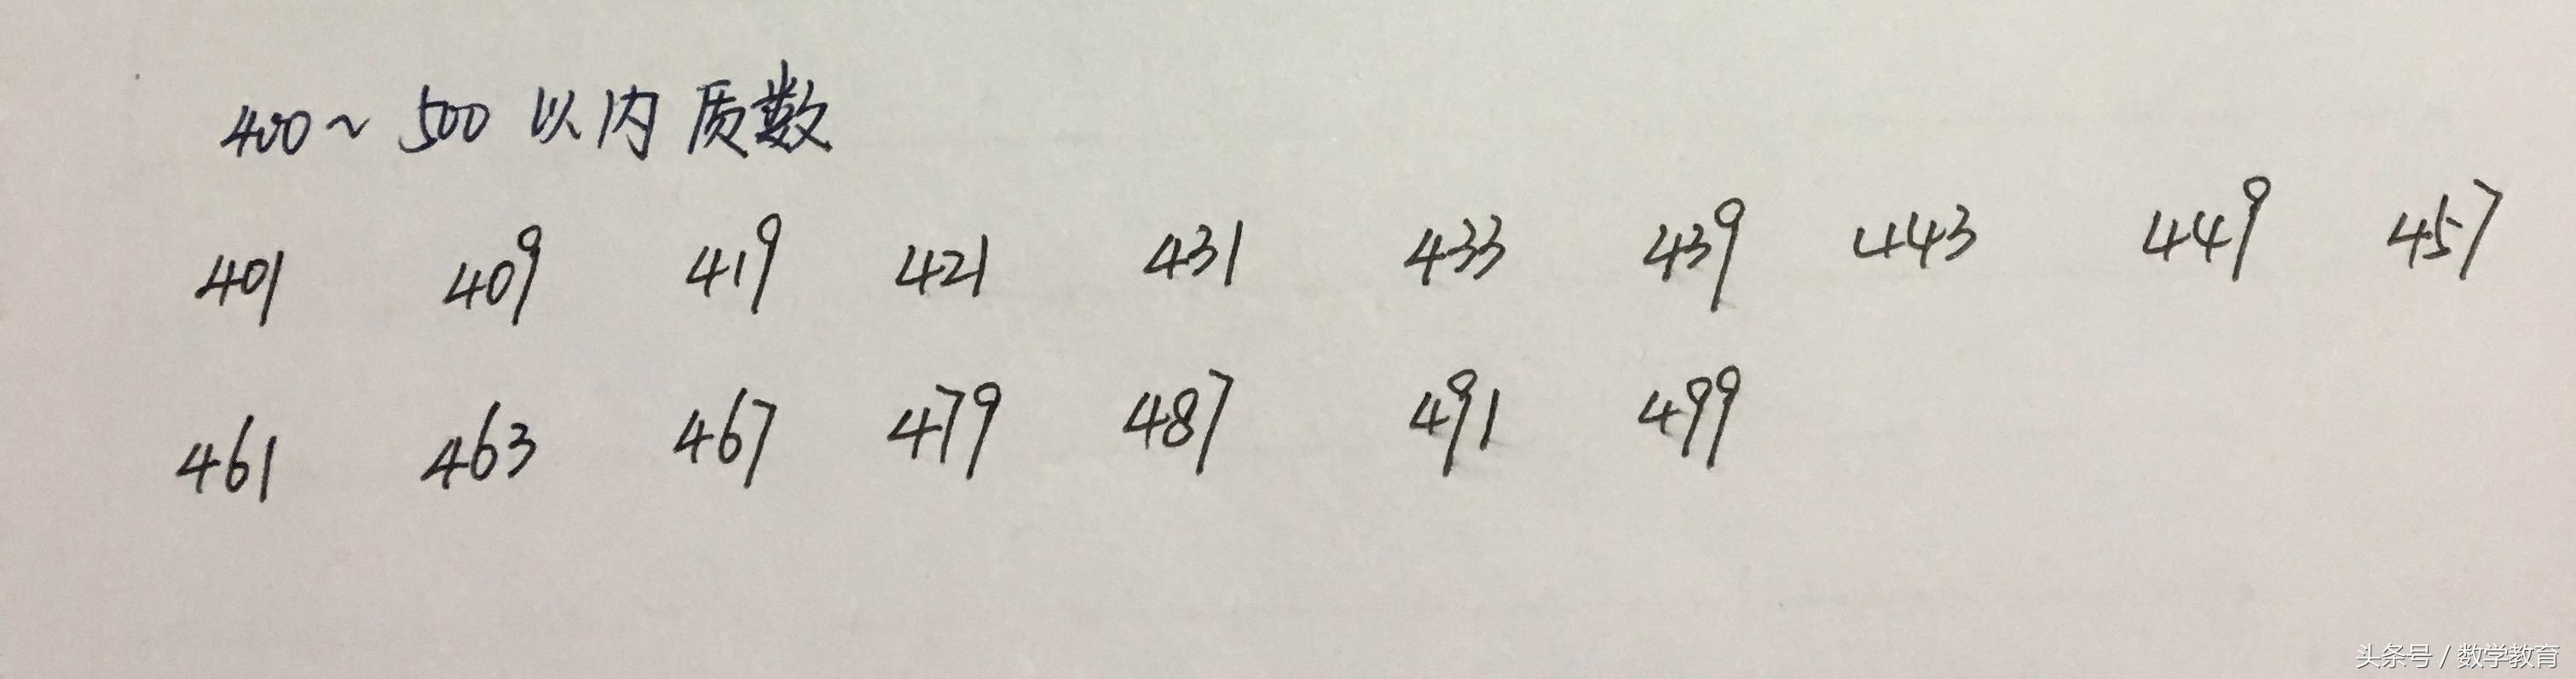 400~500 以内质数
401 409 419 421 431 433 439 443 449 457
461 463 467 479 487 491 499
头条号 / 数学教育